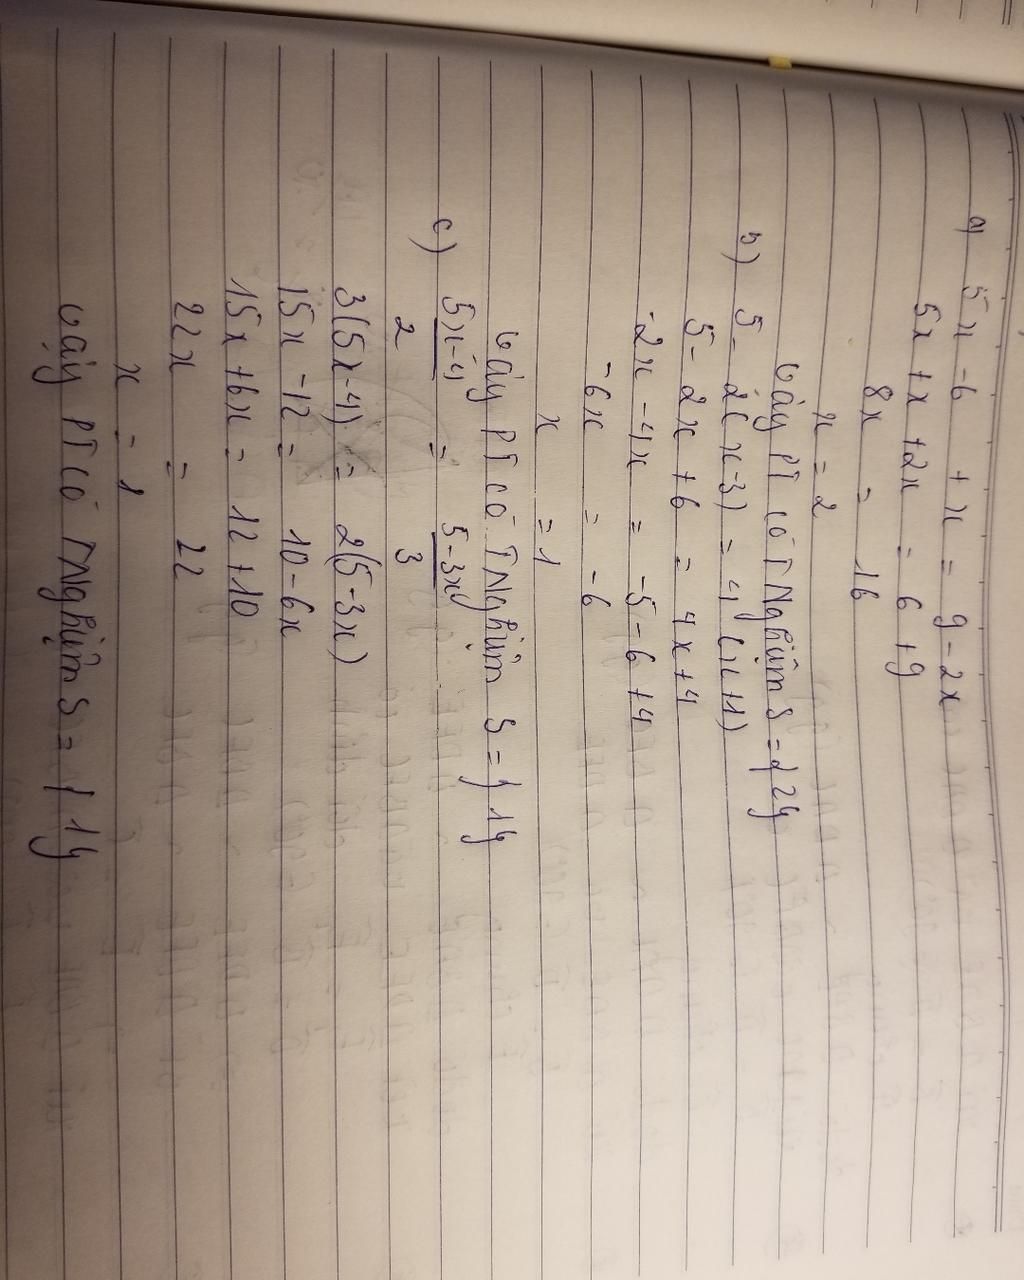 a) 5x - 6 + x = 9 - 2x
5x + x + 2x = 6 + 9
8x = 16
x = 2
Vậy PT có TNghiệm S = {2}
b) 5 - 2(x - 3) = 4(x + 1)
5 - 2x + 6 = 4x + 4
-2x - 4x = -5 - 6 + 4
-6x = -6
x = 1
Vậy PT có TNghiệm S = {1}
c) 5x - 4 / 2 = 5 - 3x / 3
3(5x - 4) = 2(5 - 3x)
15x - 12 = 10 - 6x
15x + 6x = 12 + 10
22x = 22
x = 1
Vậy PT có TNghiệm S = {1}